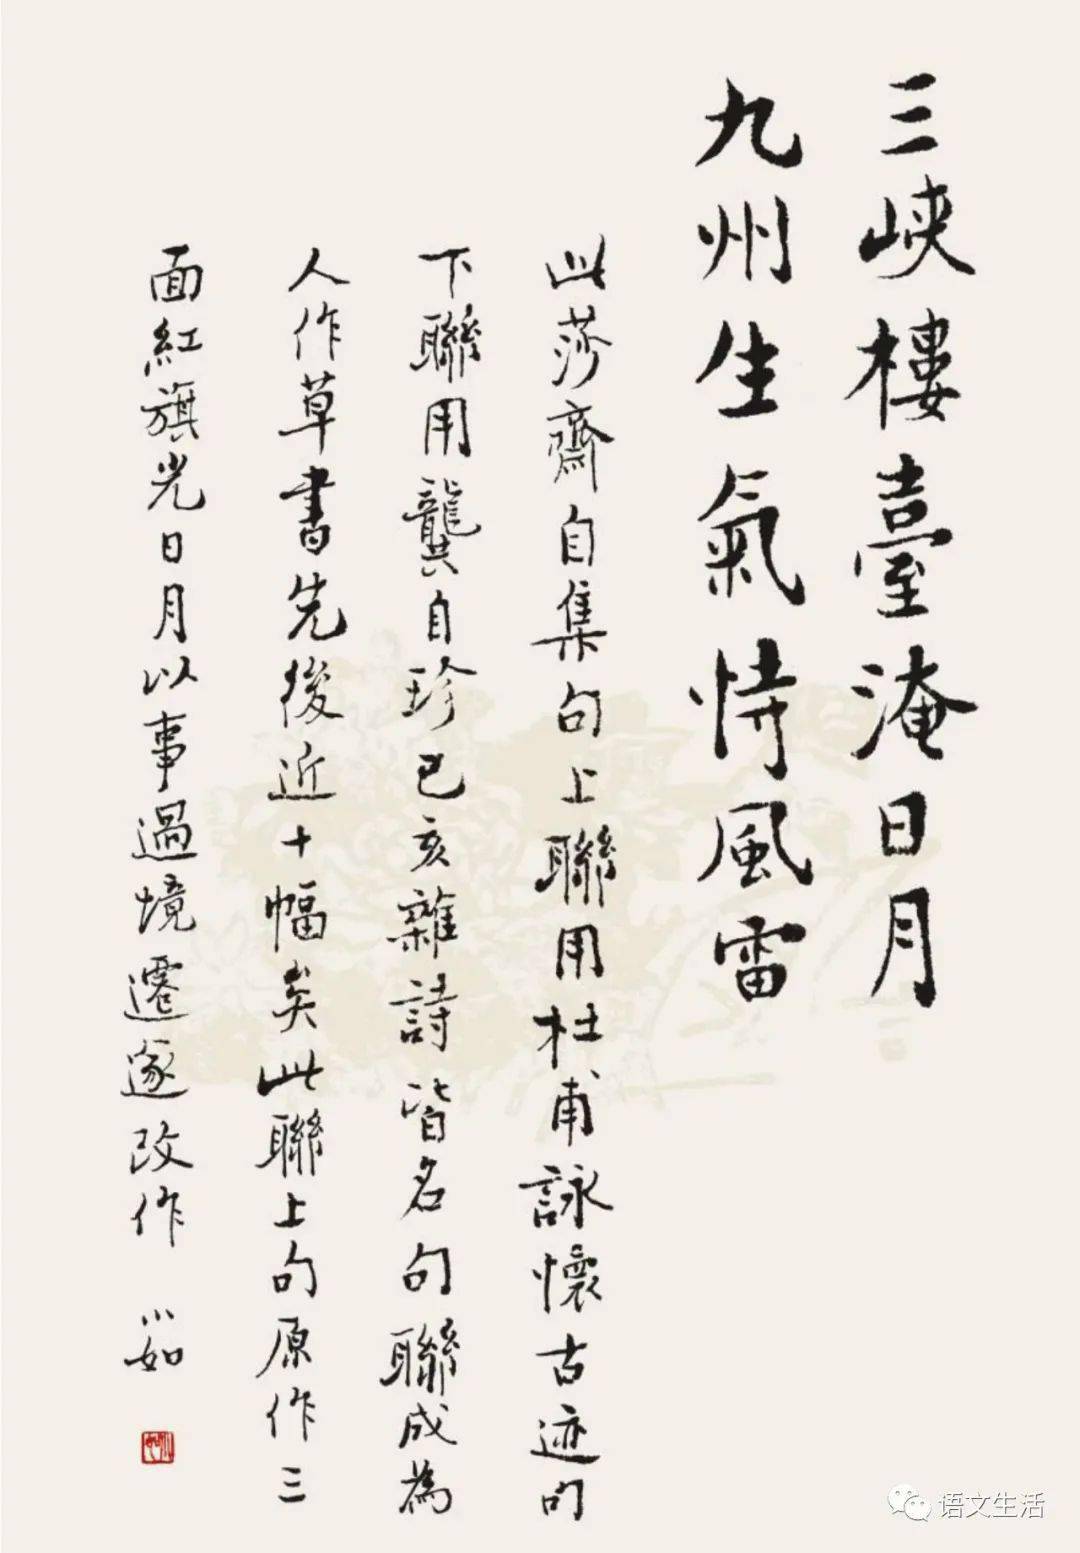 三峡樓臺淹日月
九州生氣恃風雷
此莎齋自集句上聯用杜甫詠懷古迹句
下聯用龔自珍己亥雜詩皆名句聯成為
人作草書先後近十幅矣此聯上句原作三
面紅旗光日月以事過境遷遂改作
小如
语文生活